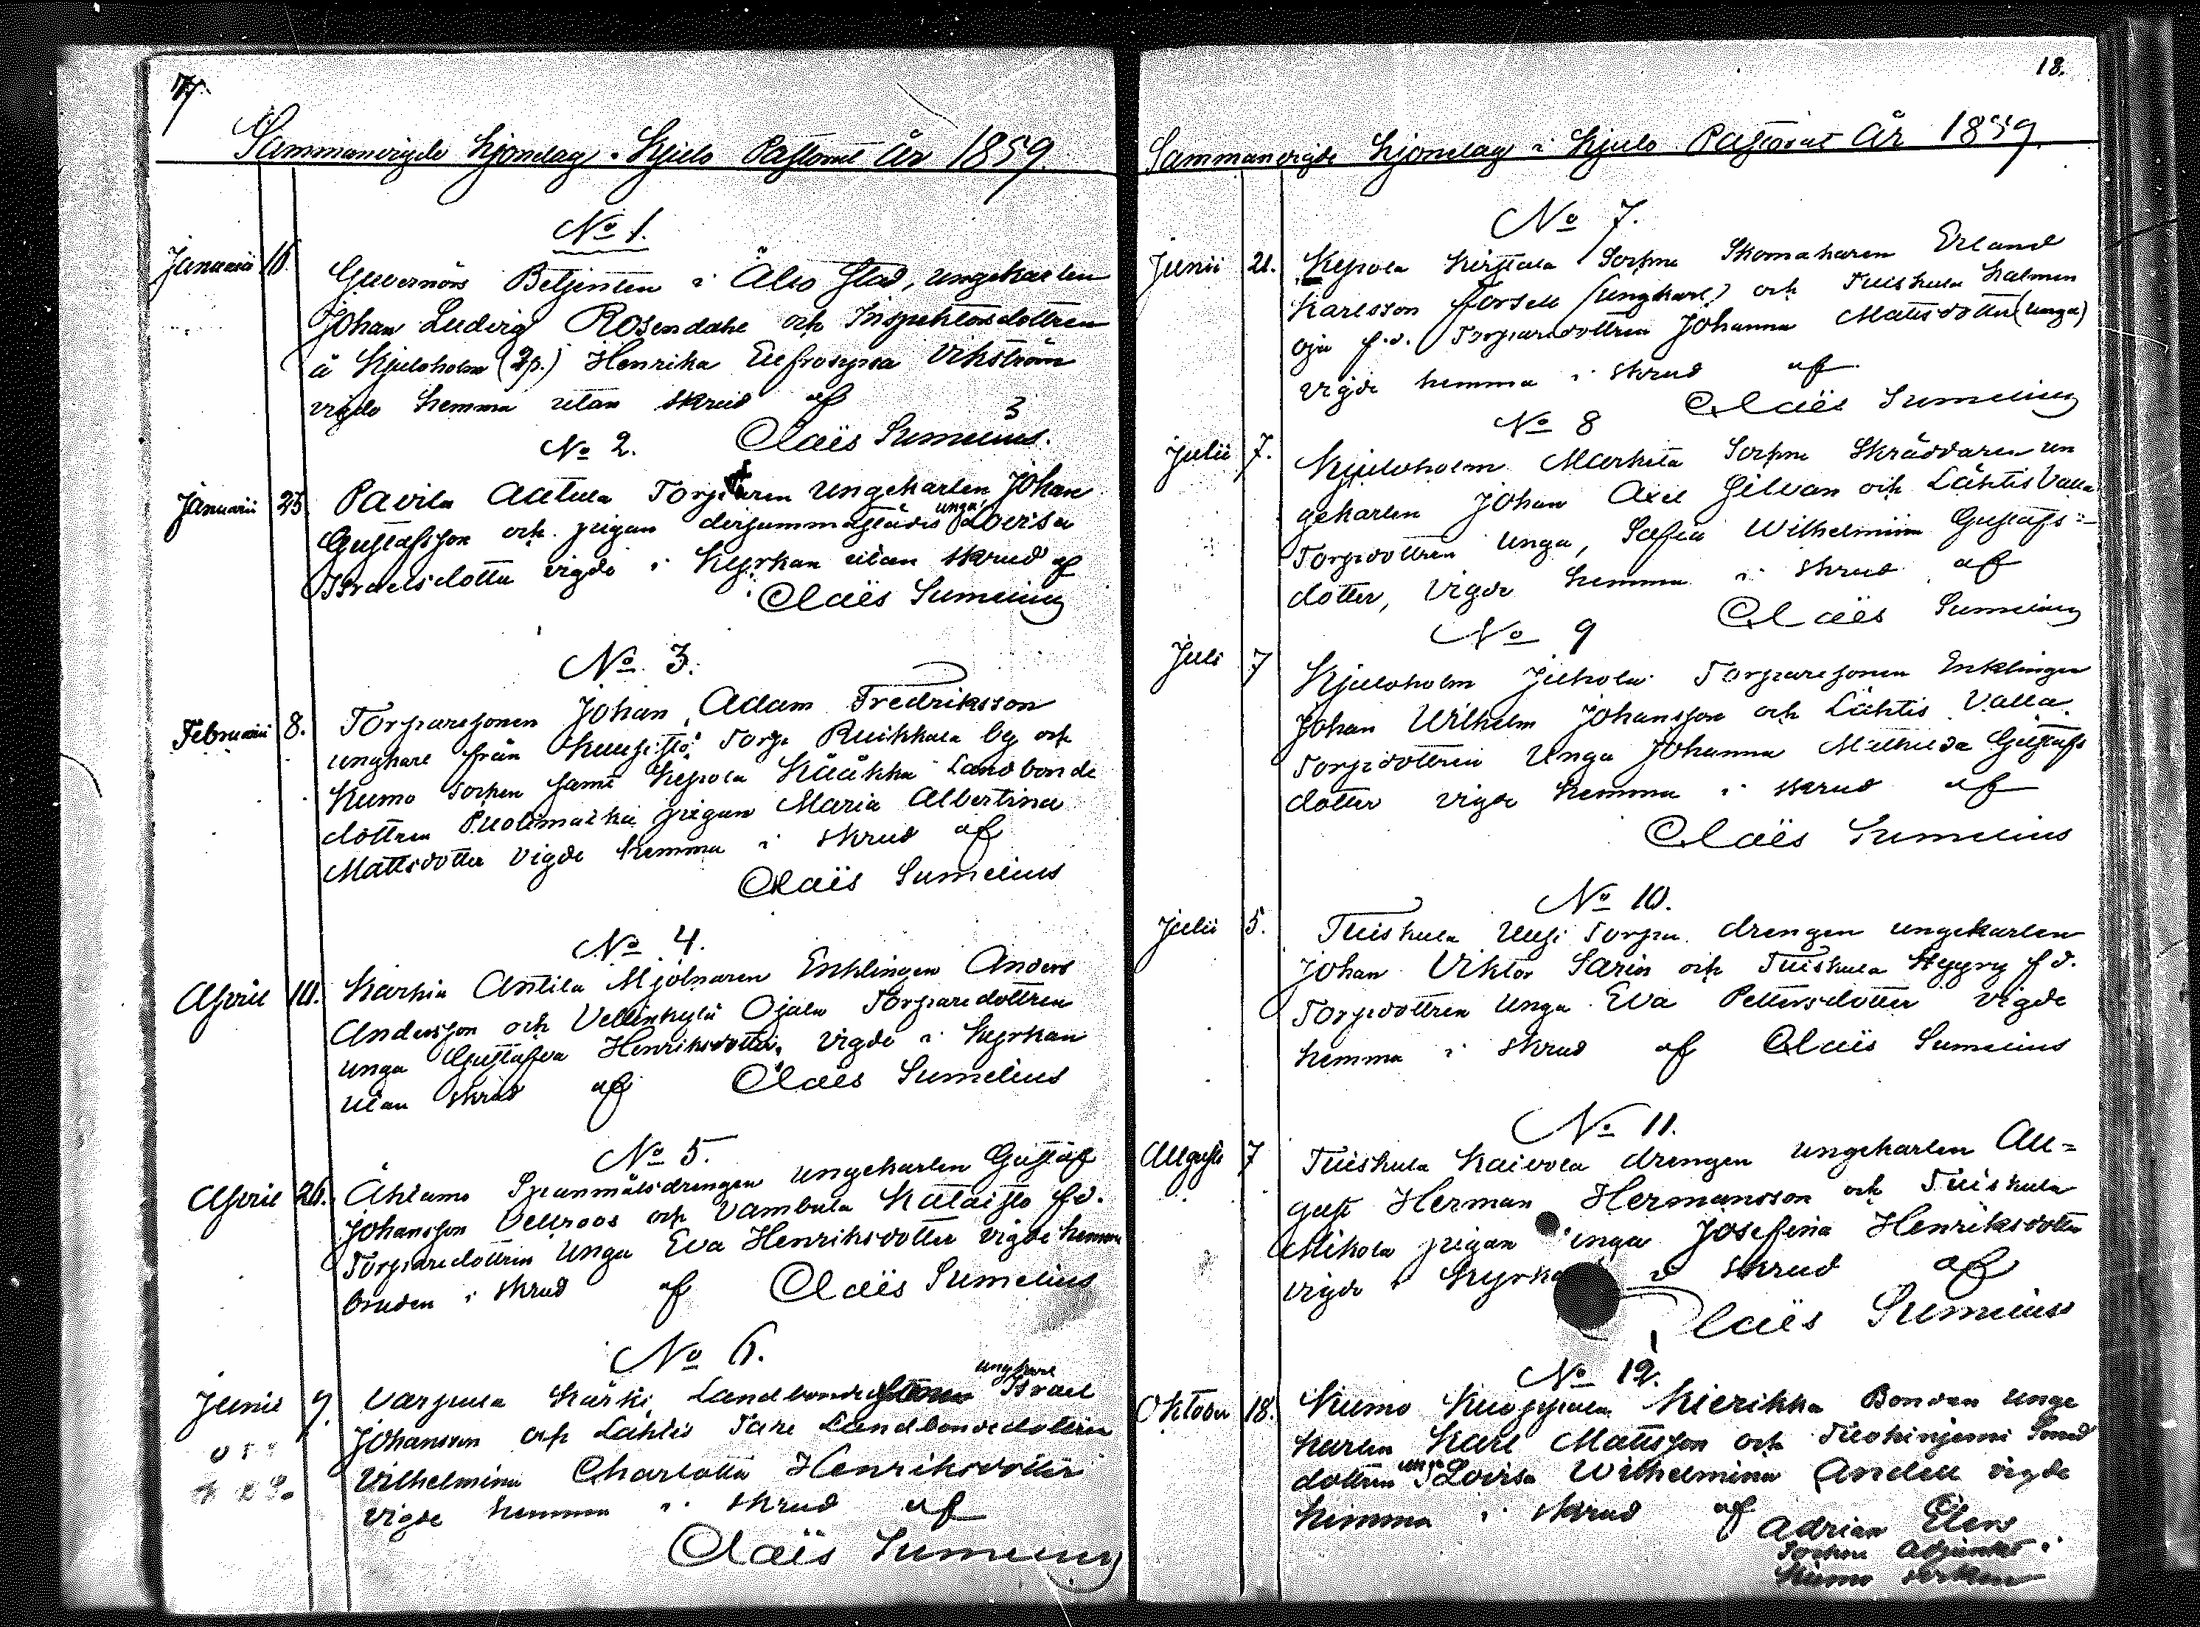 17.
Sammanvigde Hjonelag i Kjulo Pastorat År 1859
No 1.
Januarii 16. Guvernörs Betjenten i Åbo Stad, ungekarlen
Johan Ludvig Rosendahl och Inspektorsdottren
å Kjuloholm (2p.) Henrika Eufrosyna Vikström
vigde hemma utan skrud af
Claës Sumelius.
No 2.
Januarii 23 Pavila Torparen Ungekarlen Johan
Gustafsson och pigan dersammastädes unga Lovisa
Israelsdotter vigde i Kyrkan utan skrud af
Claës Sumelius
No 3.
Februarii 8. Torparesonen Johan Adam Fredriksson
ungkarl från Torp Ruikkala by och
Kumo socken samt Kepola Kääkkä Landbonde
dottren pigan Maria Albertina
Mattsdotter vigde hemma i skrud af
Claës Sumelius
No 4.
April 10. Karhia Antila Mjölnaren Enklingen Anders
Andersson och Vellinkylä Ojala Torparedottren
unga Gustafva Henriksdotter, vigde i Kyrkan
utan skrud af Claës Sumelius
No 5.
April 26. Spanmålsdrengen ungekarlen Gustaf
Johansson Vellroos och Vambula f.d.
Torparedottren Unga Eva Henriksdotter vigde hemma
bruden i skrud af Claës Sumelius
No 6.
Junii 9. Varpula Kärki Landbonde ungkarl Israel
Johansson och Lähtis Tare Landbondedottren
Vilhelmina Charlotta Henriksdotter
vigde hemma i skrud af
Claës Sumelius
18.
Sammanvigde Hjonelag i Kjulo Pastorat År 1859.
No 7.
Junii 21. Kepola Torpare Skomakaren Erland
Karlsson Forsell (ungkarl) och Tuiskula Halmen
oja f.d. Torparedottren Johanna Mattsdotter (unga)
vigde hemma i skrud af
Claës Sumelius
No 8
Julii 7. Kjuloholm Markula Torpare Skräddaren un
gekarlen Johan Axel Gilvan och Lähtis Valla
Torpdottren Unga, Sofia Wilhelmina Gustafs=
dotter, vigde hemma i skrud af
Claës Sumelius
No 9
Juli 7 Kjuloholm Torparesonen Enklingen
Johan Wilhelm Johansson och Lähtis Valla
Torpdottren Unga Johanna Mathilda Gustafs
dotter vigde hemma i skrud af
Claës Sumelius
No 10.
Julii 5. Tuiskula Uusi Torpa drengen ungekarlen
Johan Viktor Sarin och Tuiskula Nyyry f.d.
Torpdottren Unga Eva Pettersdotter vigde
hemma i skrud af Claës Sumelius
No 11.
Augusti 7 Tuiskula Kaivola drengen ungekarlen Au=
gust Herman Hermansson och Tuiskula
Mikola pigan unga Josefina Henriksdotter
vigde i Kyrkan i skrud af
Claës Sumelius
No 12.
Oktober 18. Kumo Kuoppala Kierikka Bonden Unge
karlen Karl Mattsson och
dottren unga Lovisa Wilhelmina Andell vigde
hemma i skrud af Adrian Elers
Socken Adjunkt i
Kumo socken